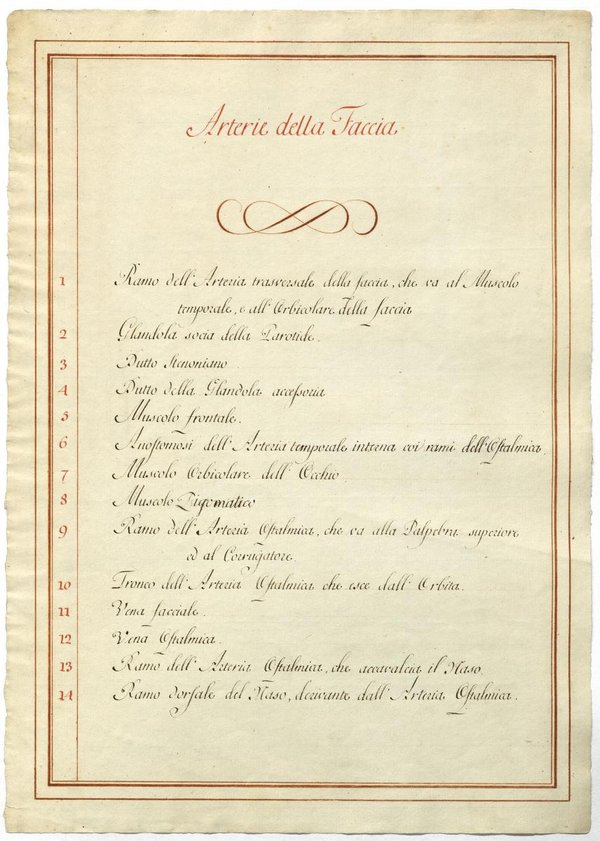 Arterie della Faccia
1 Ramo dell' Arteria trasversale della faccia, che va al Muscolo
temporale, e all' Orbicolare della faccia
2 Glandola socia della Parotide.
3 Dutto Stenoniano
4 Dutto della Glandola accessoria
5 Muscolo frontale.
6 Anostomosi dell' Arteria temporale interna coi rami dell' Oftalmica
7 Muscolo Orbicolare dell' Occhio
8 Muscolo Zigomatico
9 Ramo dell' Arteria Oftalmica, che va alla Palpebra superiore
ed al Corrugatore.
10 Tronco dell' Arteria Oftalmica che esce dall' Orbita.
11 Vena facciale.
12 Vena Oftalmica.
13 Ramo dell' Arteria Oftalmica, che accavalcia il Naso.
14 Ramo dorsale del Naso, derivante dall' Arteria Oftalmica.